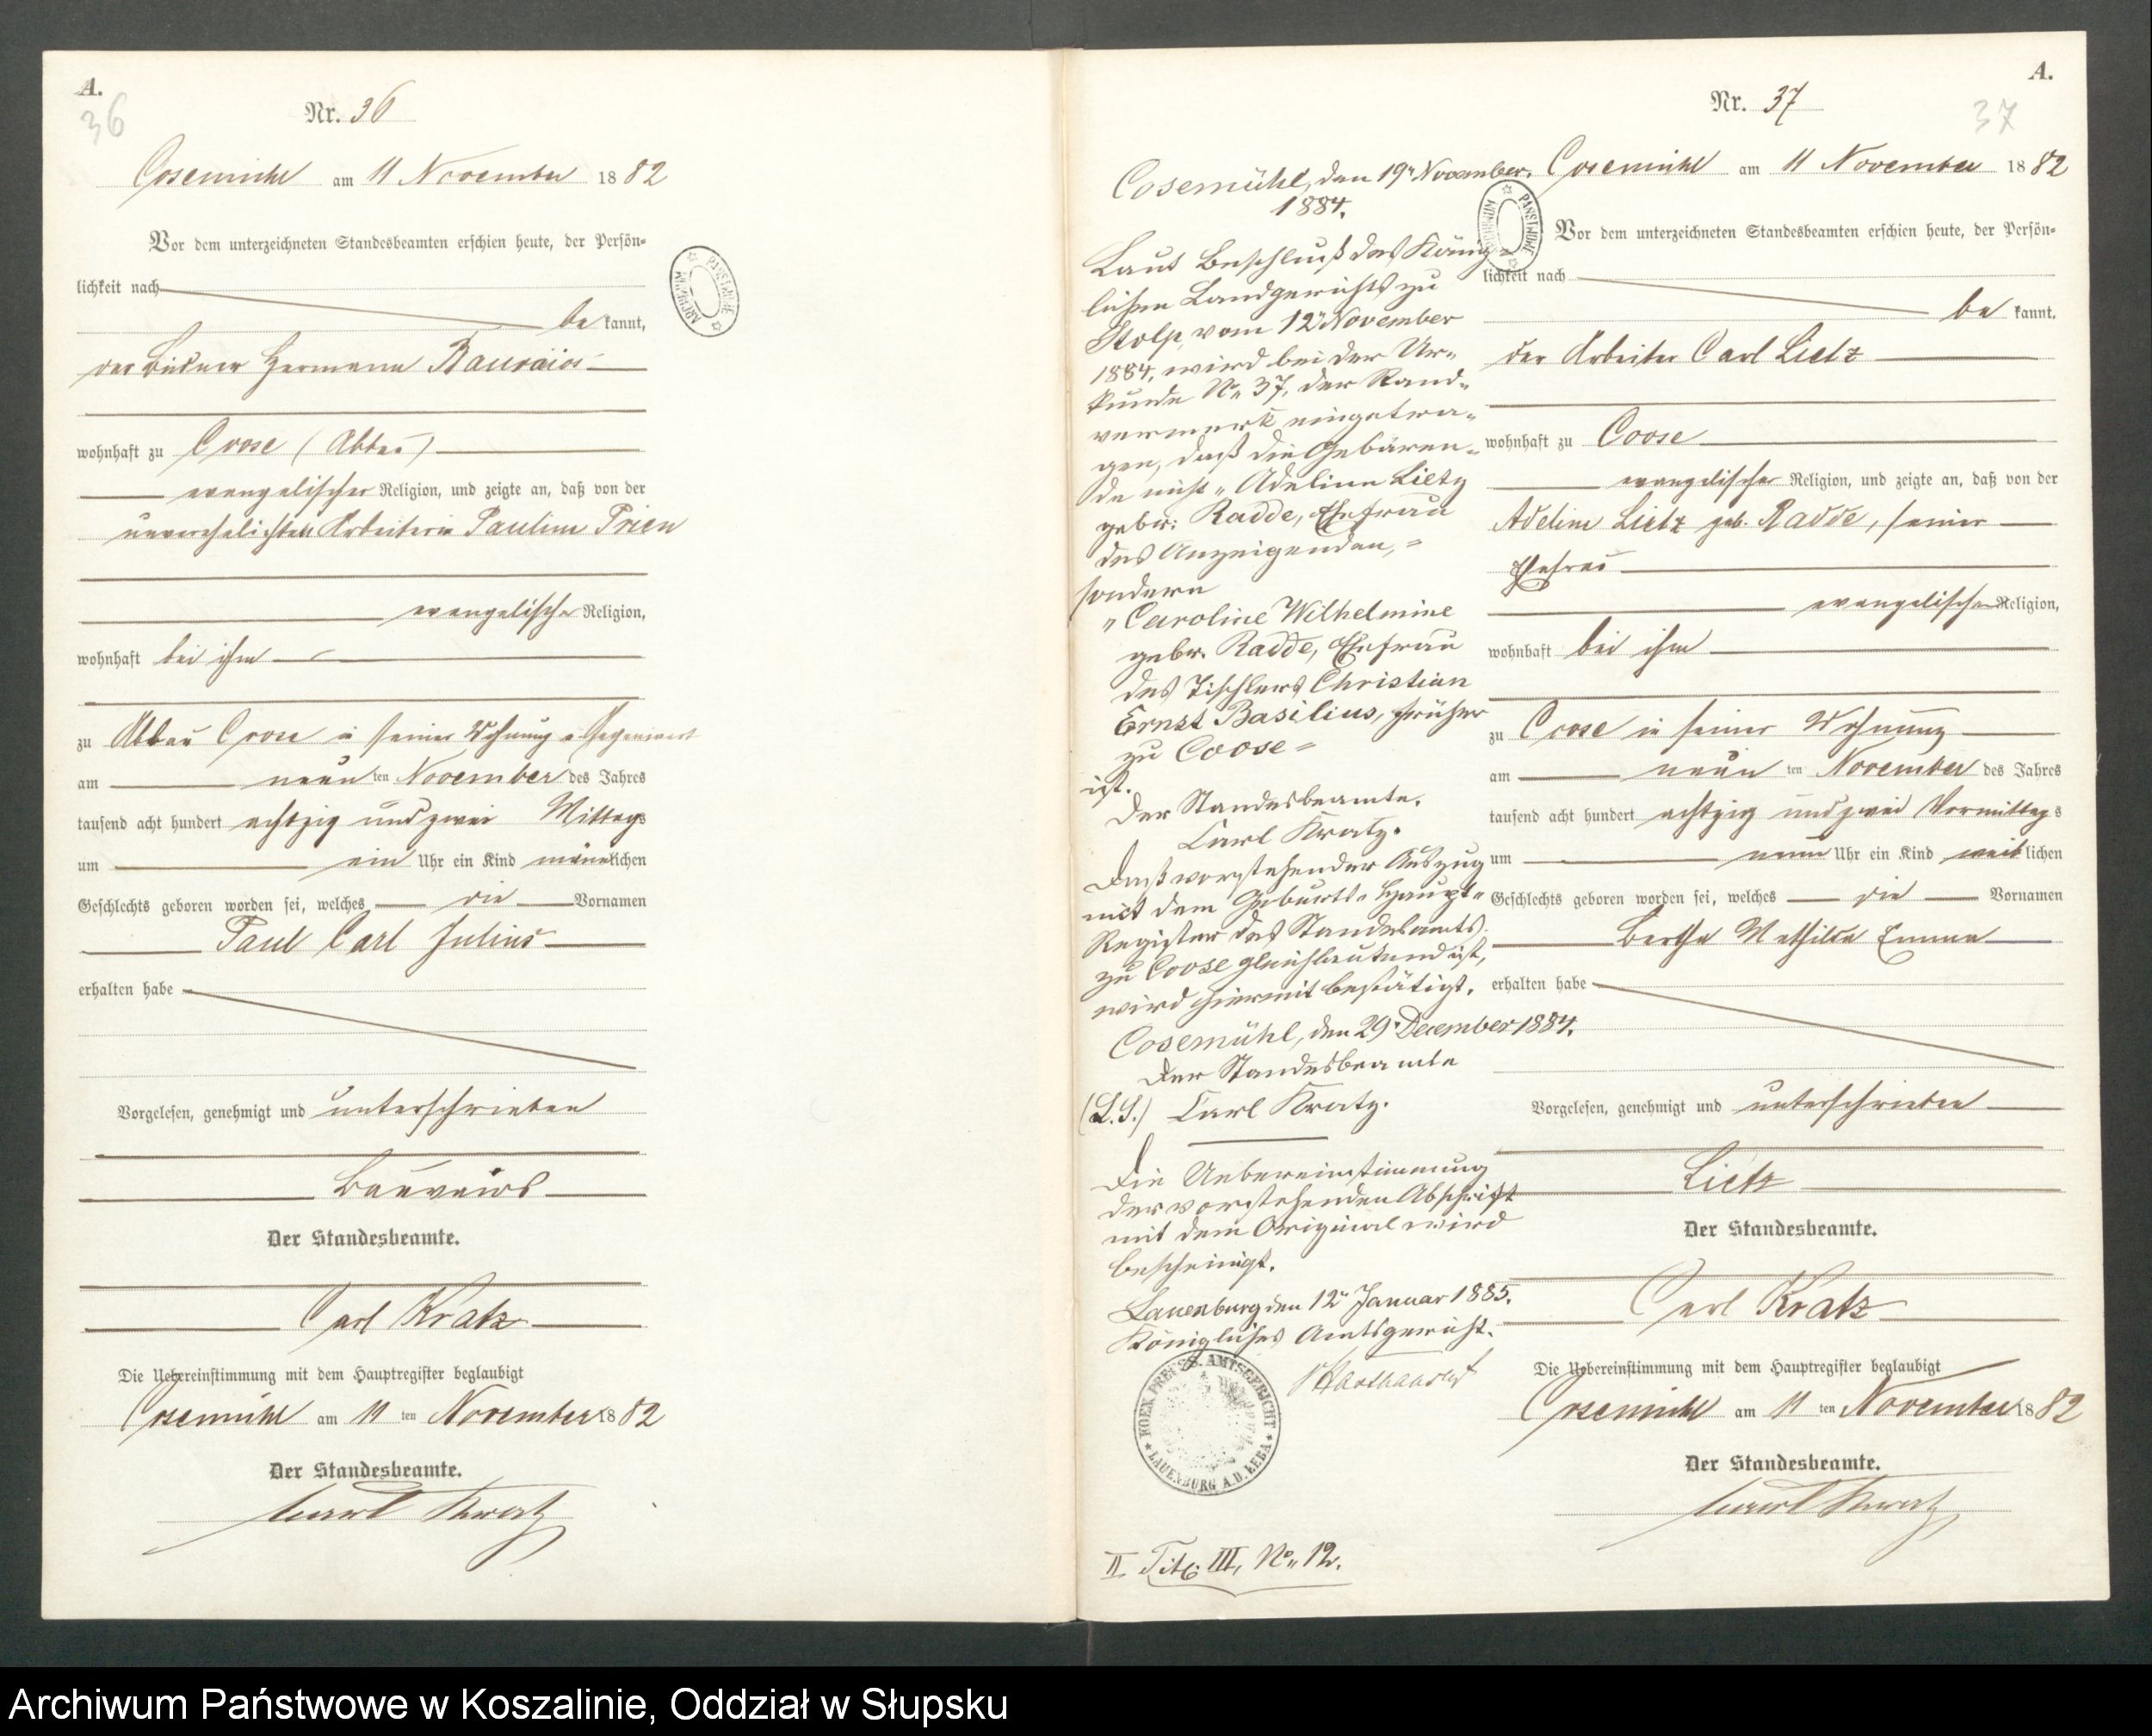 A.
36
Nr. 36
Cosemühl am 11 November 1882
Vor dem unterzeichneten Standesbeamten erschien heute, der Persön-
lichkeit nach
be kannt,
der Büdner Hermann
wohnhaft zu Coose (Abbau)
evangelischer Religion, und zeigte an, daß von der
unverehelichten Arbeiterin Pauline Prien
evangelischer Religion,
wohnhaft bei ihm
zu Abbau Coose in seiner Wohnung
am neun ten November des Jahres
tausend acht hundert achtzig und zwei Mittags
um ein Uhr ein Kind männlichen
Geschlechts geboren worden sei, welches die Vornamen
Paul Carl Julius
erhalten habe
Vorgelesen, genehmigt und unterschrieben
Der Standesbeamte.
Carl Kratz
Die Uebereinstimmung mit dem Hauptregister beglaubigt
Cosemühl am 11 ten November 1882
Der Standesbeamte.
Carl Kratz
Cosemühl, den 19n November
1884.
Laut Beschluß des König-
lichen Landgerichts zu
Stolp, vom 12n November
1884, wird bei der Ur-
kunde No 37, der Rand-
vermerk eingetra-
gen, daß die Gebären-
de nicht "Adeline Lietz
gebr. Radde, Ehefrau
des Anzeigenden,"
sondern
"Caroline Wilhelmine
gebr. Radde, Ehefrau
des Tischlers Christian
Ernst Basilius, früher
zu Coose"
ist.
Der Standesbeamte.
Carl Kratz.
Daß vorstehender Auszug
mit dem Geburts-Haupt-
Register des Standesamts
zu Coose gleichlautend ist,
wird hiermit bestätigt.
Cosemühl, den 29n December 1884.
Der Standesbeamte
(L.S.) Carl Kratz.
Die Uebereinstimmung
der vorstehenden Abschrift
mit dem Original wird
bescheinigt.
Lauenburg den 12n Januar 1885.
Königliches Amtsgericht.
KOEN. PREUSS. AMTSGERICHT
LAUENBURG A.D. LEBA
II Tit. III, No. 12.
A.
37
Nr. 37
Cosemühl am 11 November 1882
Vor dem unterzeichneten Standesbeamten erschien heute, der Persön-
lichkeit nach
be kannt,
der Arbeiter Carl Lietz
wohnhaft zu Coose
evangelischer Religion, und zeigte an, daß von der
Adeline Lietz geb. Radde, seiner
Ehefrau
evangelischer Religion,
wohnhaft bei ihm
zu Coose in seiner Wohnung
am neun ten November des Jahres
tausend acht hundert achtzig und zwei Vormittags
um neun Uhr ein Kind weiblichen
Geschlechts geboren worden sei, welches die Vornamen
Bertha Mathilde Emma
erhalten habe
Vorgelesen, genehmigt und unterschrieben
Lietz
Der Standesbeamte.
Carl Kratz
Die Uebereinstimmung mit dem Hauptregister beglaubigt
Cosemühl am 11 ten November 1882
Der Standesbeamte.
Carl Kratz
ARCHIWUM PAŃSTWOWE
Archiwum Państwowe w Koszalinie, Oddział w Słupsku